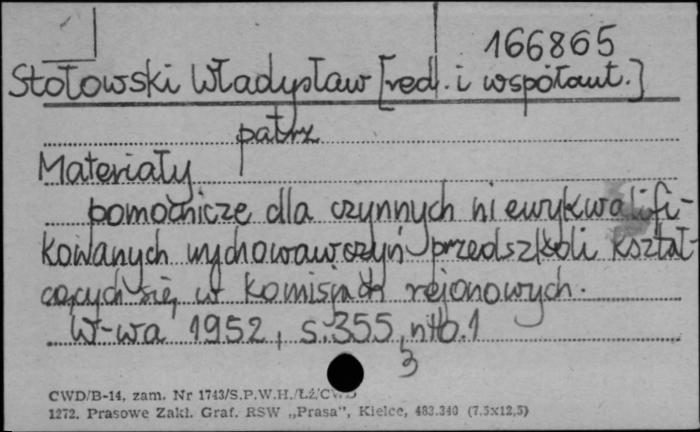 166865
Stołowski Władysław [red. i współaut.]
patrz
Materiały
pomocnicze dla czynnych niewykwalifi-
kowanych wychowawczyń przedszkoli kształ-
cących się w komisjach rejonowych.
W-wa 1952, s. 355, nlb. 1
3
CWD/B-14, zam. Nr 1743/S.P.W.H./Łź/CWD
1272. Prasowe Zakł. Graf. RSW „Prasa”, Kielce, 483.340 (7.5x12,5)